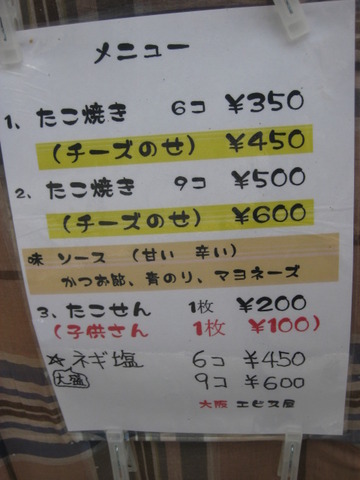 メニュー
1、たこ焼き 6コ ¥350
(チーズのせ) ¥450
2、たこ焼き 9コ ¥500
(チーズのせ) ¥600
味 ソース (甘い 辛い)
かつお節、青のり、マヨネーズ
3、たこせん 1枚 ¥200
(子供さん 1枚 ¥100)
☆ネギ塩 6コ ¥450
大盛 9コ ¥600
大阪 エビス屋